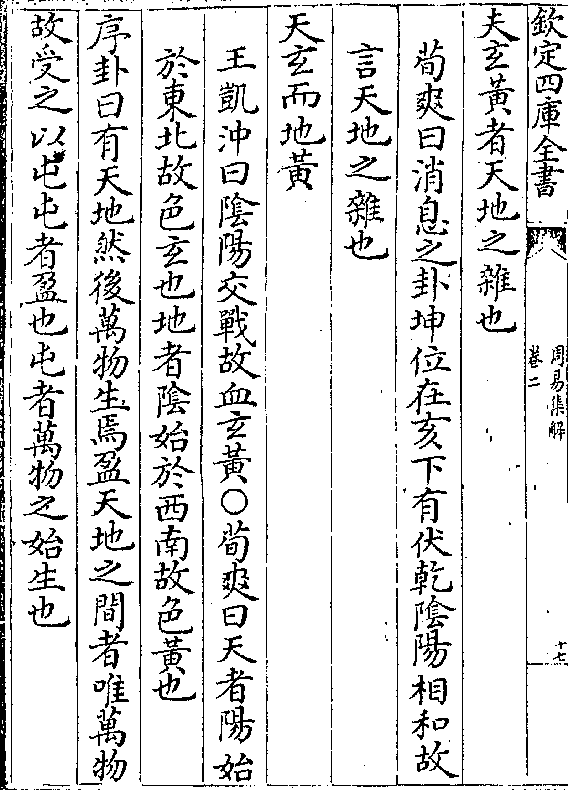 欽定四庫全書
周易集解
卷二
十七
夫玄黃者天地之雜也
荀爽曰消息之卦坤位在亥下有伏乾陰陽相和故
言天地之雜也
天玄而地黃
王凱沖曰陰陽交戰故血玄黃○荀爽曰天者陽始
於東北故色玄也地者陰始於西南故色黃也
序卦曰有天地然後萬物生焉盈天地之間者唯萬物
故受之以屯屯者盈也屯者萬物之始生也